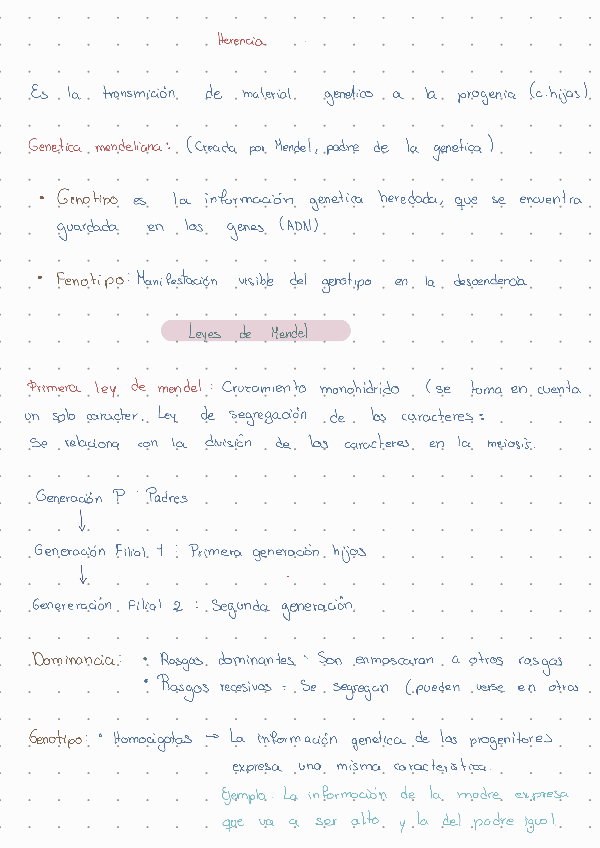 Herencia
Es la transmición de material genetico a la progenia (c.hijas)
Genetica mendeliana: (Creada por Mendel, padre de la genetica)
• Genotipo es la información genetica heredada, que se encuentra
guardada en los genes (ADN)
• Fenotipo: Manifestación visible del genotipo en la descendencia
Leyes de Mendel
Primera ley de mendel: Cruzamiento monohidrido (se toma en cuenta
un solo caracter. Ley de segregación de los caracteres:
Se relaciona con la división de los caracteres en la meiosis.
Generación P : Padres
↓
Generación Filial 1 : Primera generación hijos
↓
Genereración Filial 2 : Segunda generación
Dominancia: • Rasgos dominantes : Son enmascaran a otros rasgos
• Rasgos recesivos : Se segregan (pueden verse en otros
Genotipo: • Homocigotas → La información genetica de los progenitores
expresa una misma caracteristica.
Ejemplo: La información de la madre expresa
que va a ser alto y la del padre igual.